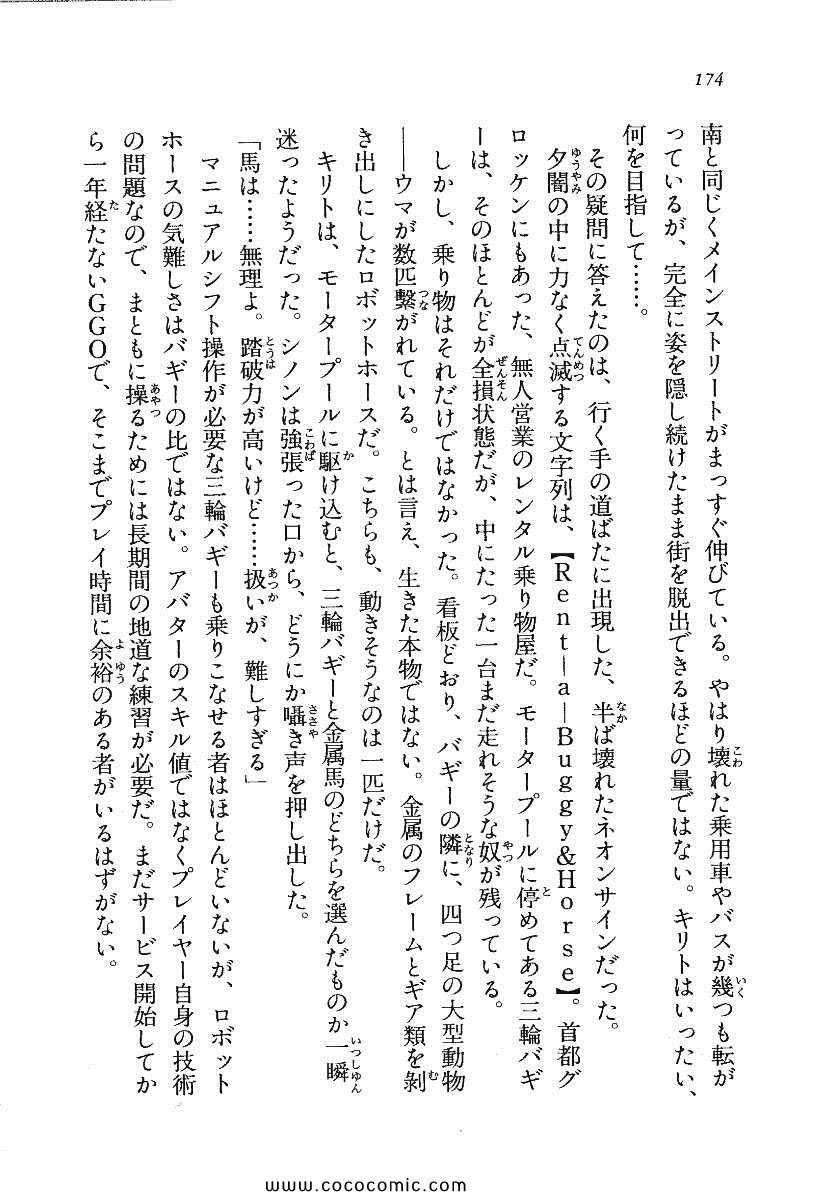 174
南と同じくメインストリートがまっすぐ伸びている。やはり壊れた乗用車やバスが幾つも転が
っているが、完全に姿を隠し続けたまま街を脱出できるほどの量ではない。キリトはいったい、
何を目指して……。
その疑問に答えたのは、行く手の道ばたに出現した、半ば壊れたネオンサインだった。
夕闇の中に力なく点滅する文字列は、【Rent-a-Buggy&Horse】。首都グ
ロッケンにもあった、無人営業のレンタル乗り物屋だ。モータープールに停めてある三輪バギ
ーは、そのほとんどが全損状態だが、中にたった一台まだ走れそうな奴が残っている。
しかし、乗り物はそれだけではなかった。看板どおり、バギーの隣に、四つ足の大型動物
――ウマが数匹繋がれている。とは言え、生きた本物ではない。金属のフレームとギア類を剝
き出しにしたロボットホースだ。こちらも、動きそうなのは一匹だけだ。
キリトは、モータープールに駆け込むと、三輪バギーと金属馬のどちらを選んだものか一瞬
迷ったようだった。シノンは強張った口から、どうにか囁き声を押し出した。
「馬は……無理よ。踏破力が高いけど……扱いが、難しすぎる」
マニュアルシフト操作が必要な三輪バギーも乗りこなせる者はほとんどいないが、ロボット
ホースの気難しさはバギーの比ではない。アバターのスキル値ではなくプレイヤー自身の技術
の問題なので、まともに操るためには長期間の地道な練習が必要だ。まだサービス開始してか
ら一年経たないGGOで、そこまでプレイ時間に余裕のある者がいるはずがない。
www.cococomic.com